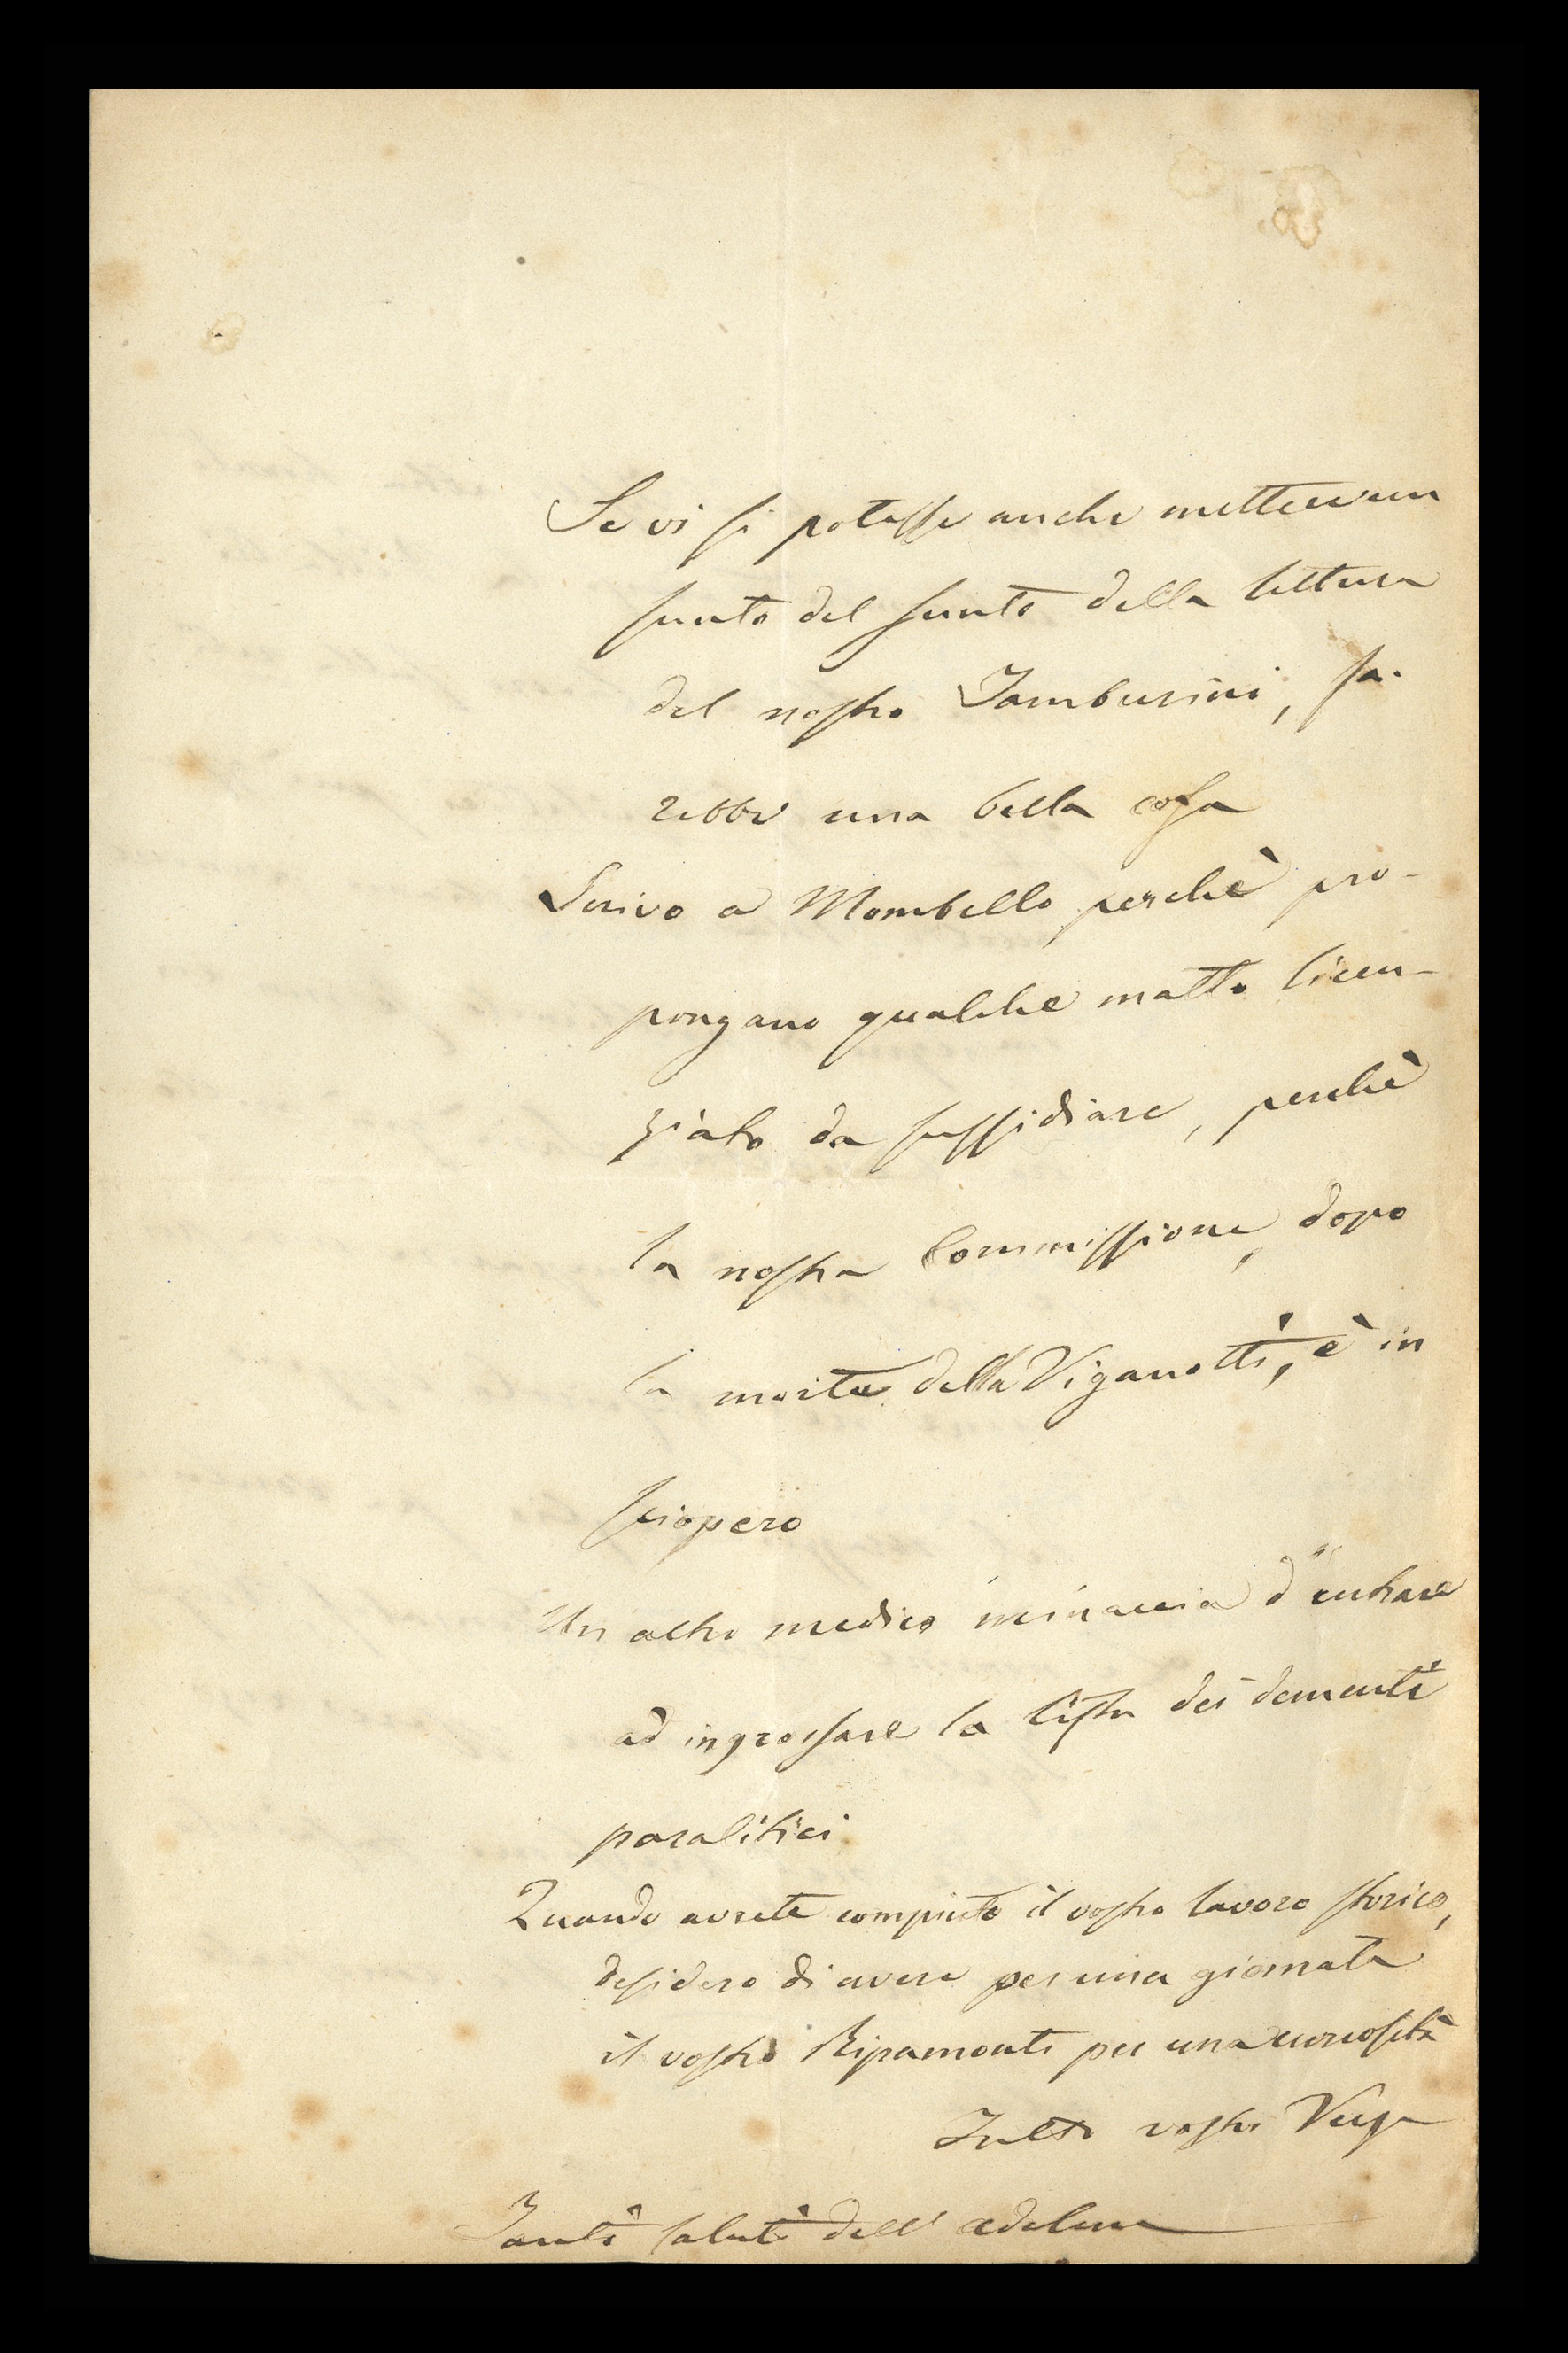 Se vi si potesse anche mettere un
sunto del sunto della lettura
del nostro Tamburini, sa-
rebbe una bella cosa
Scrivo a Mombello perchè pro-
pongano qualche matto licen-
ziato da sussidiare, perchè
la nostra Commissione, dopo
la morte della Viganotti, è in
sciopero
Un altro medico minaccia d'entrare
ad ingrossare la lista dei dementi
paralitici
Quando avrete compiuto il vostro lavoro storico,
desidero di avere per una giornata
il vostro Ripamonti per una curiosità
Tutto vostro Verga
Tanti saluti dell'Adelina